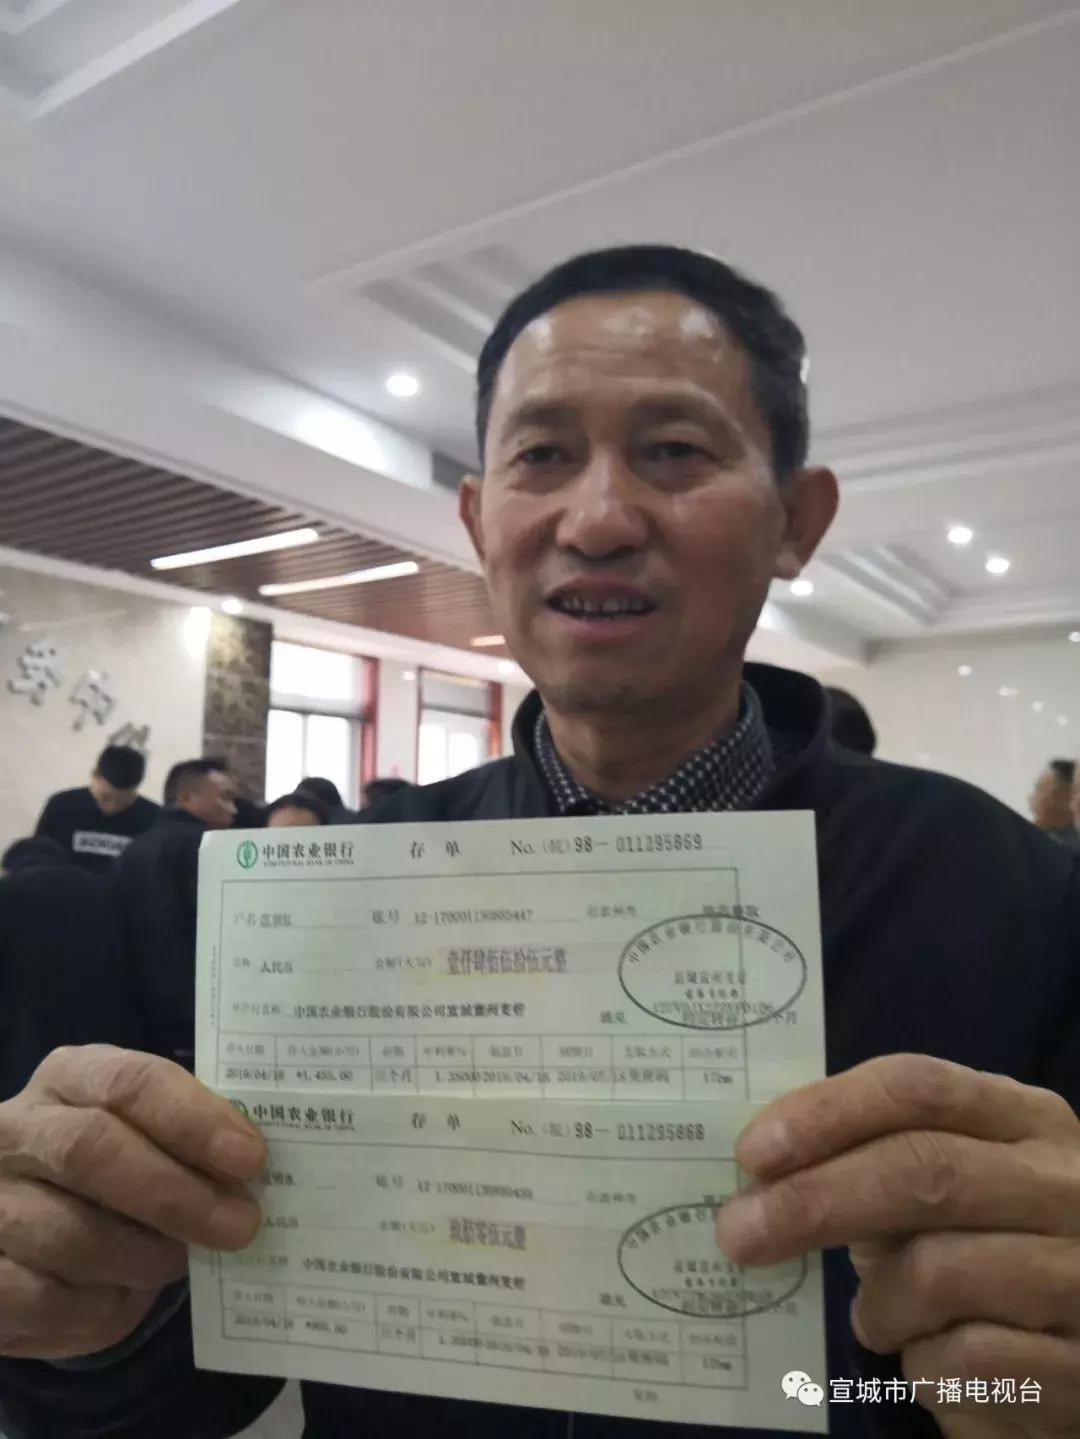 中国农业银行 存单 No.(皖)98-011295869
AGRICULTURAL BANK OF CHINA
户名 账号 12-170001130885447 存款种类
币种 人民币 金额(大写) 壹仟肆佰伍拾伍元整
中国农业银行股份有限公司宣城宣州支行 通兑
中国农业银行股份有限公司
宣城宣州支行
业务专用章
存入日期 存入金额(小写) 存期 年利率% 起息日 到期日 支取方式
2019/04/18 *1,455.00 三个月 1.35000 2019/04/18 2019/07/18 凭密码
中国农业银行 存单 No.(皖)98-011295868
AGRICULTURAL BANK OF CHINA
账号 存款种类
人民币 金额(大写) 玖佰零伍元整
中国农业银行股份有限公司宣城宣州支行 通兑
宣城宣州支行
业务专用章
存入日期 存入金额(小写) 存期 年利率% 起息日 到期日 支取方式
2019/04/18 *905.00 三个月 1.35000 2019/04/18 2019/07/18 凭密码
宣城市广播电视台